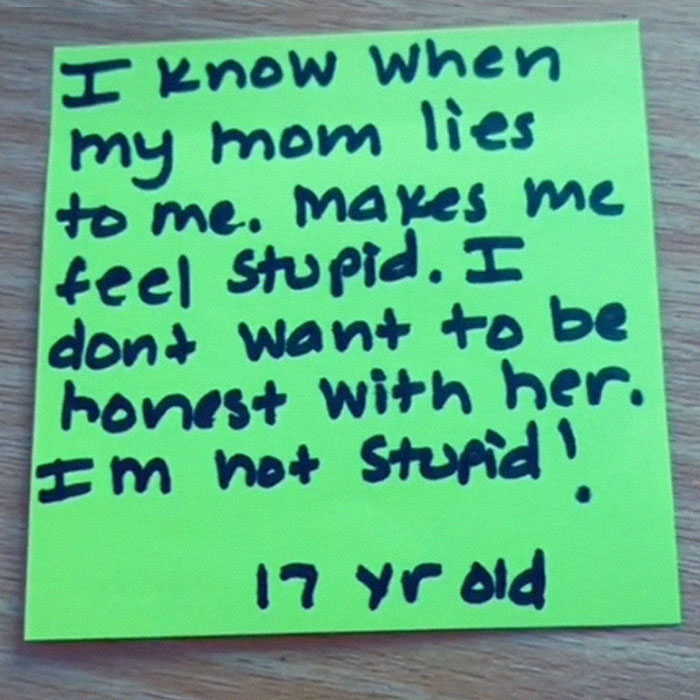 I know when
my mom lies
to me. Makes me
feel stupid. I
dont want to be
honest with her.
Im not stupid!
17 yr old